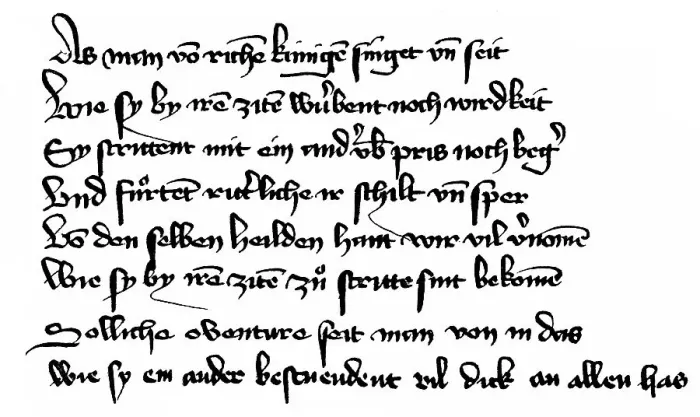 Als man vō richē kúnigē singet vn̄ seit
Wie sy by irē zitē wurbent noch wirdkeit
Sy strittent mit ein and vb pris noch beg̉
Vnd fuͦrtēt ritt̉liche ir schilt vn̄ sper
Vō den selben heilden hant wir vil v̉nomē
Wie sy by irē zitē zuͦ stritte sint bekomē
Solliche oventure seit man von in das
Wie sy ein ander bestuendent vil dick an allen has